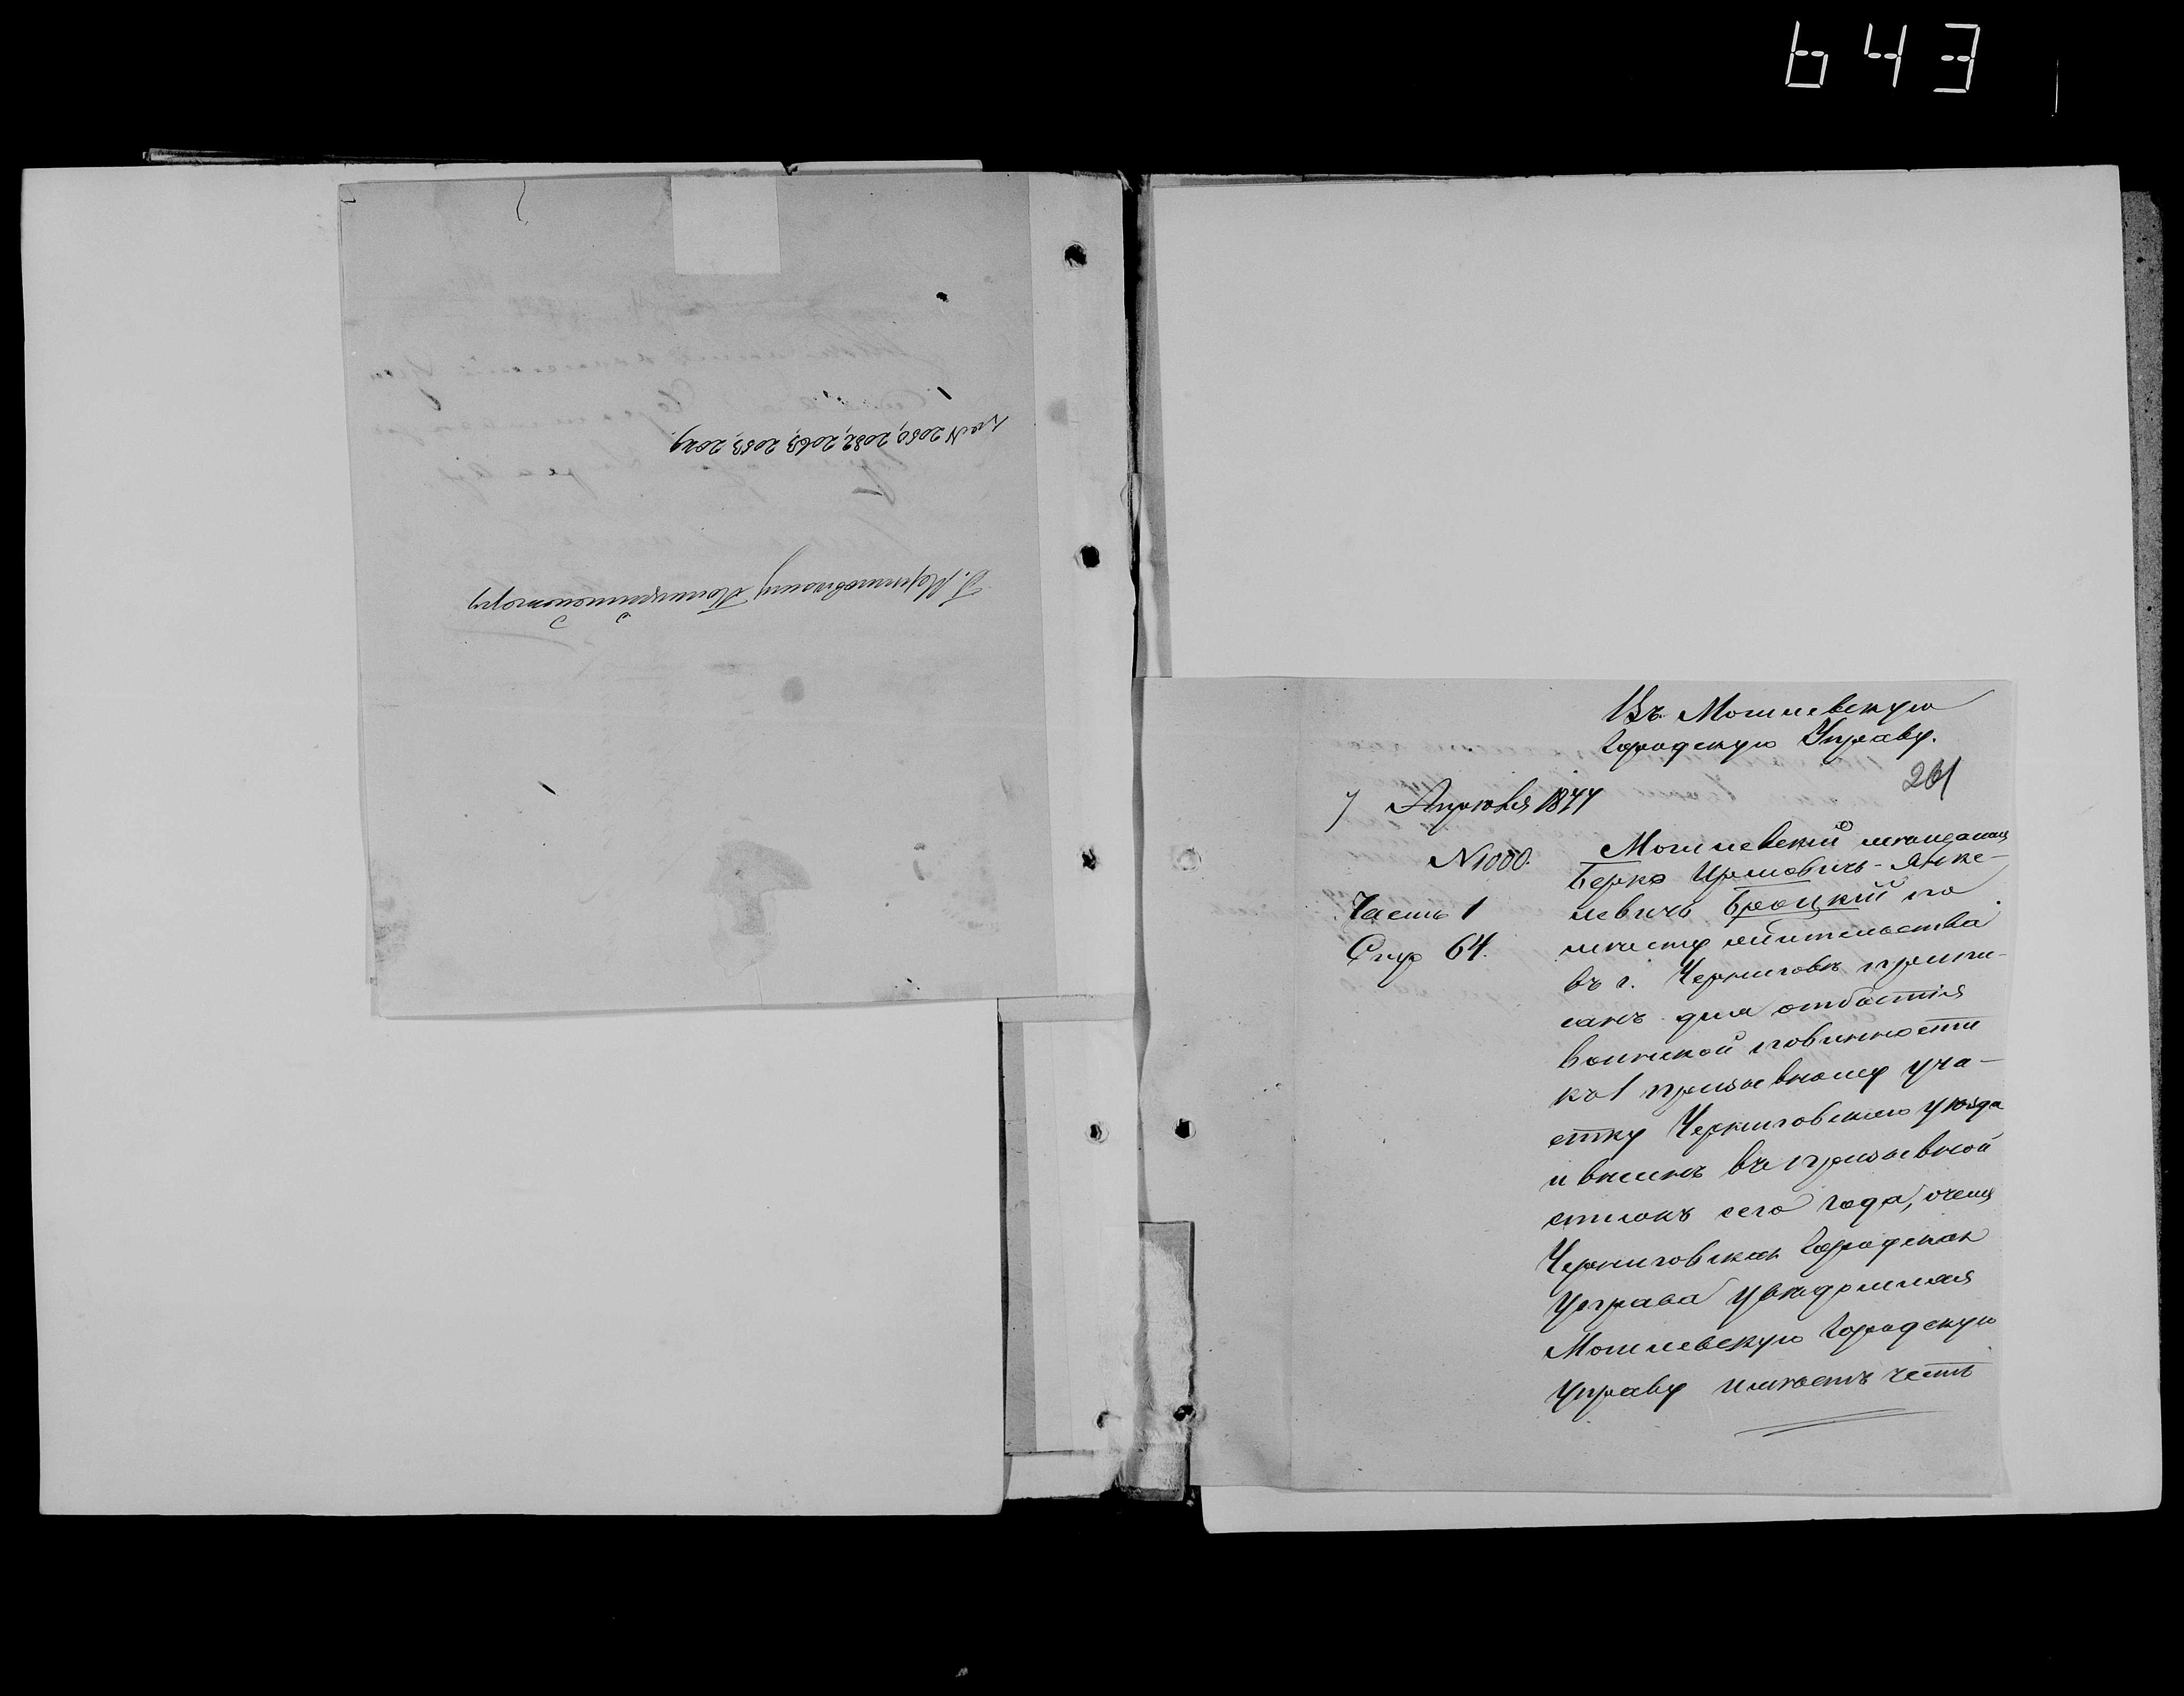 643
на № 2050, 2082, 2063, 2053, 2029.
Г. Черниговскому Полицеймейстеру
Въ Могилевскую
Городскую Управу.
261
7 Апрѣля 1877
№ 1000.
Часть 1
Стр 64.
Могилевскій мѣщанинъ
Берко Ирмовичъ-Янке-
левичъ Броцкій по
мѣсту жительства
въ г. Черниговѣ припи-
санъ для отбытія
воинской повинности
къ 1 призывному уча-
стку Черниговскаго уѣзда
и внесенъ въ призывной
списокъ сего года, о чемъ
Черниговская Городская
Управа увѣдомляя
Могилевскую Городскую
Управу имѣетъ честь